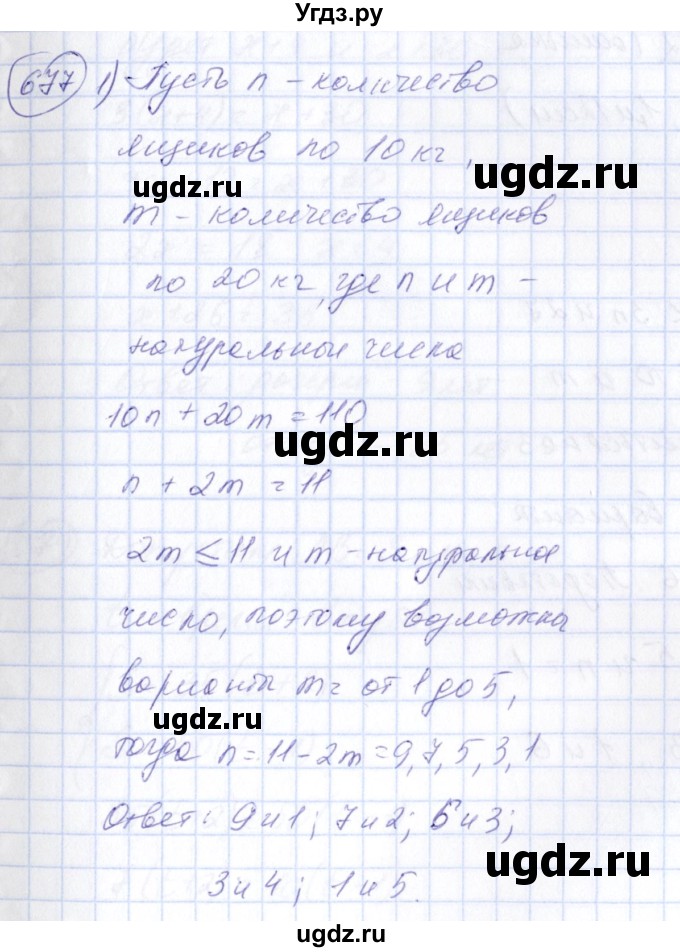 Угдз.ру
677 1) Пусть n - количество
ящиков по 10 кг,
ugdz.ru ugdz.ru
m - количество ящиков
по 20 кг, где n и m -
натуральные числа
10n + 20m = 110
ugdz.ru
n + 2m = 11
2m ≤ 11 и m - натуральное
число, поэтому возможна
варианты m = от 1 до 5,
ugdz.ru
тогда n = 11 - 2m = 9, 7, 5, 3, 1
Ответ: 9 и 1; 7 и 2; 5 и 3;
ugdz.ru ugdz.ru
3 и 4; 1 и 5.